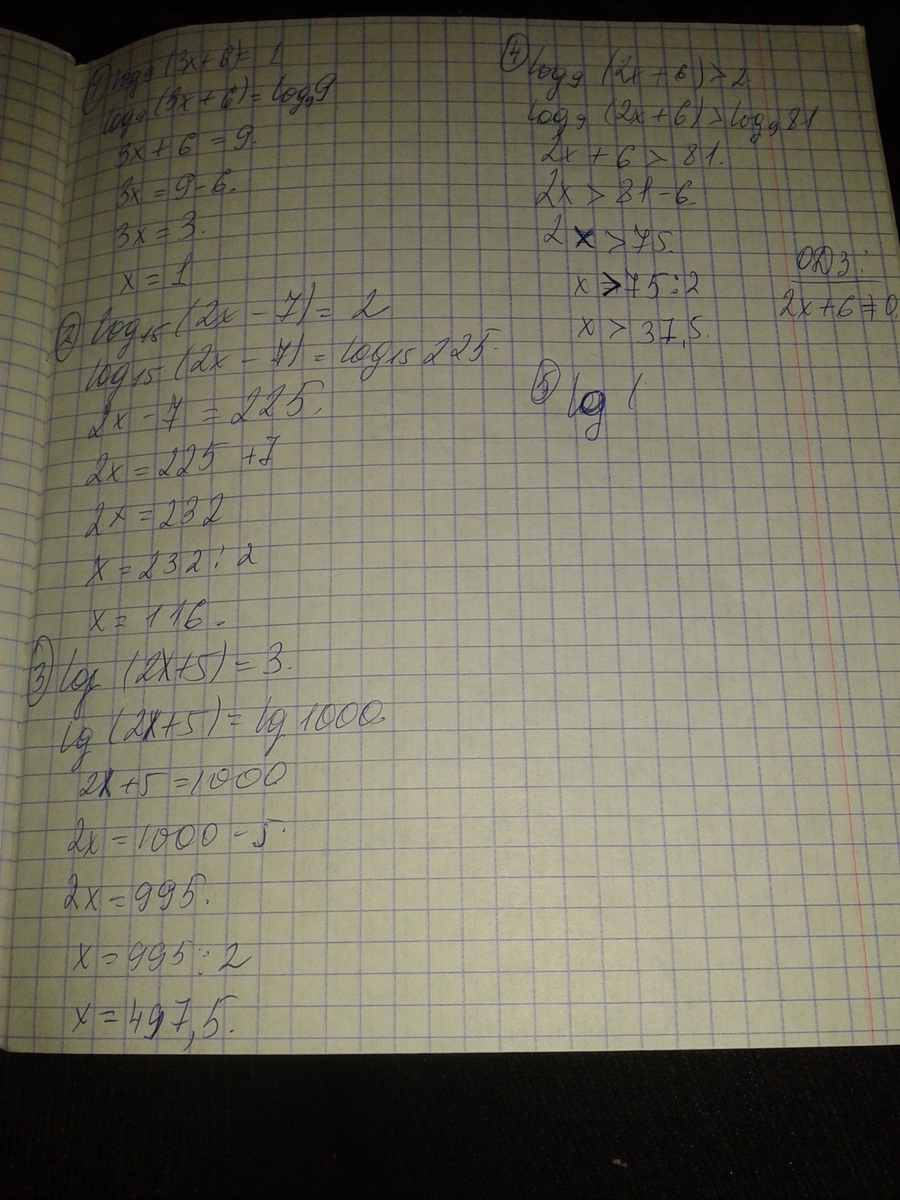 ① log₉ (3x+6) = 1
log₉ (3x+6) = log₉9
3x+6 = 9.
3x = 9-6.
3x = 3.
x = 1
② log₁₅ (2x - 7) = 2
log₁₅ (2x - 7) = log₁₅ 225.
2x - 7 = 225.
2x = 225 + 7
2x = 232
x = 232 : 2
x = 116.
③ lg (2x+5) = 3.
lg (2x+5) = lg 1000.
2x+5 = 1000
2x = 1000 - 5.
2x = 995.
x = 995 : 2
x = 497,5.
④ log₉ (2x+6) > 2
log₉ (2x+6) > log₉ 81
2x + 6 > 81.
2x > 81-6.
2x > 75.
x > 75 : 2
x > 37,5.
ОДЗ:
2x+6 ≠ 0
⑤ log (